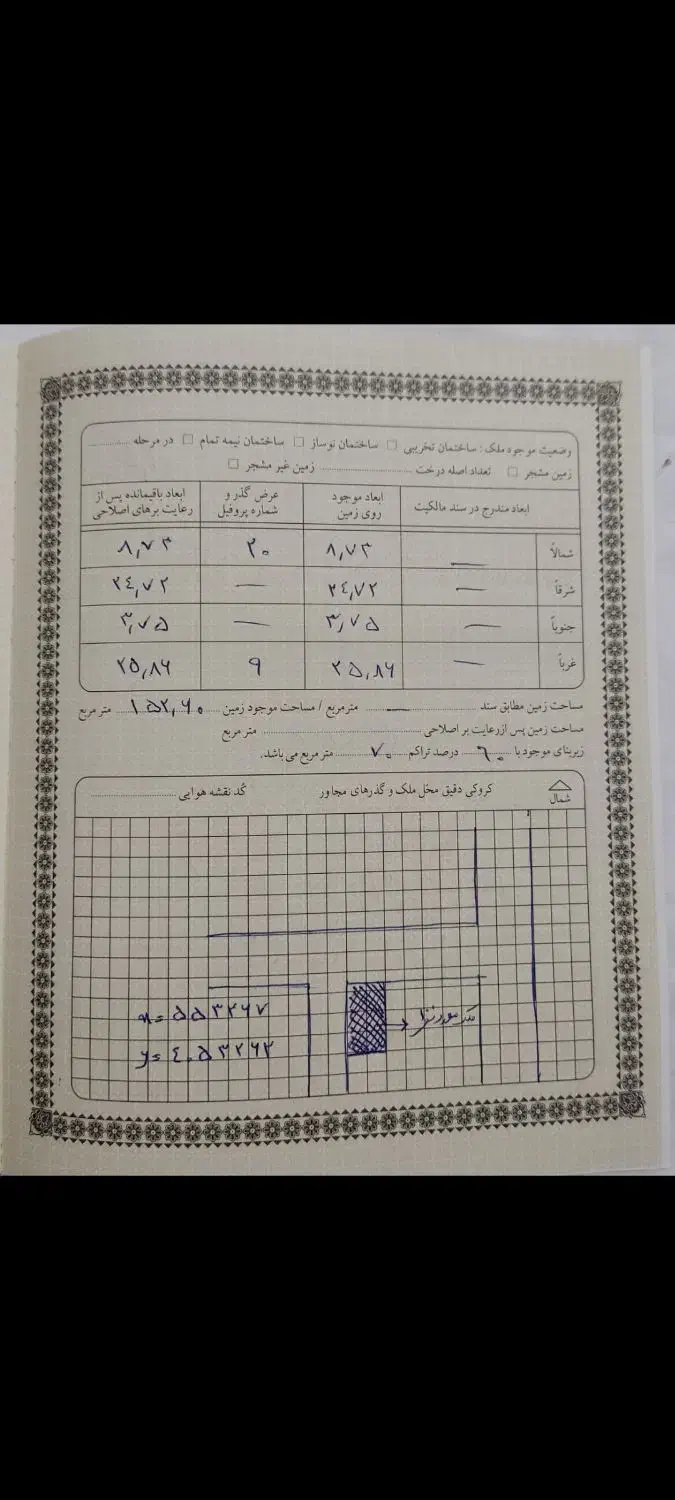 وضعیت موجود ملک : ساختمان تخریبی □ ساختمان نوساز □ ساختمان نیمه تمام □ در مرحله ..........
زمین مشجر □ تعداد اصله درخت .......... زمین غیر مشجر □
ابعاد مندرج در سند مالکیت ابعاد موجود روی زمین عرض گذر و شماره پروفیل ابعاد باقیمانده پس از رعایت برهای اصلاحی
شمالاً — ۸,۷۳ ۲۰ ۸,۷۳
شرقاً — ۲۴,۷۲ — ۲۴,۷۲
جنوباً — ۳,۷۵ — ۳,۷۵
غرباً — ۲۵,۸۶ ۹ ۲۵,۸۶
مساحت زمین مطابق سند — مترمربع / مساحت موجود زمین ۱۵۲,۶۰ متر مربع
مساحت زمین پس از رعایت بر اصلاحی .......... متر مربع
زیربنای موجود با ۶۰ درصد تراکم ۷۰ متر مربع می باشد.
شمال
کروکی دقیق محل ملک و گذرهای مجاور کد نقشه هوایی ..........
ملک مورد نظر
x= ۵۵۳۲۶۷
y= ۴۰۵۳۲۶۲